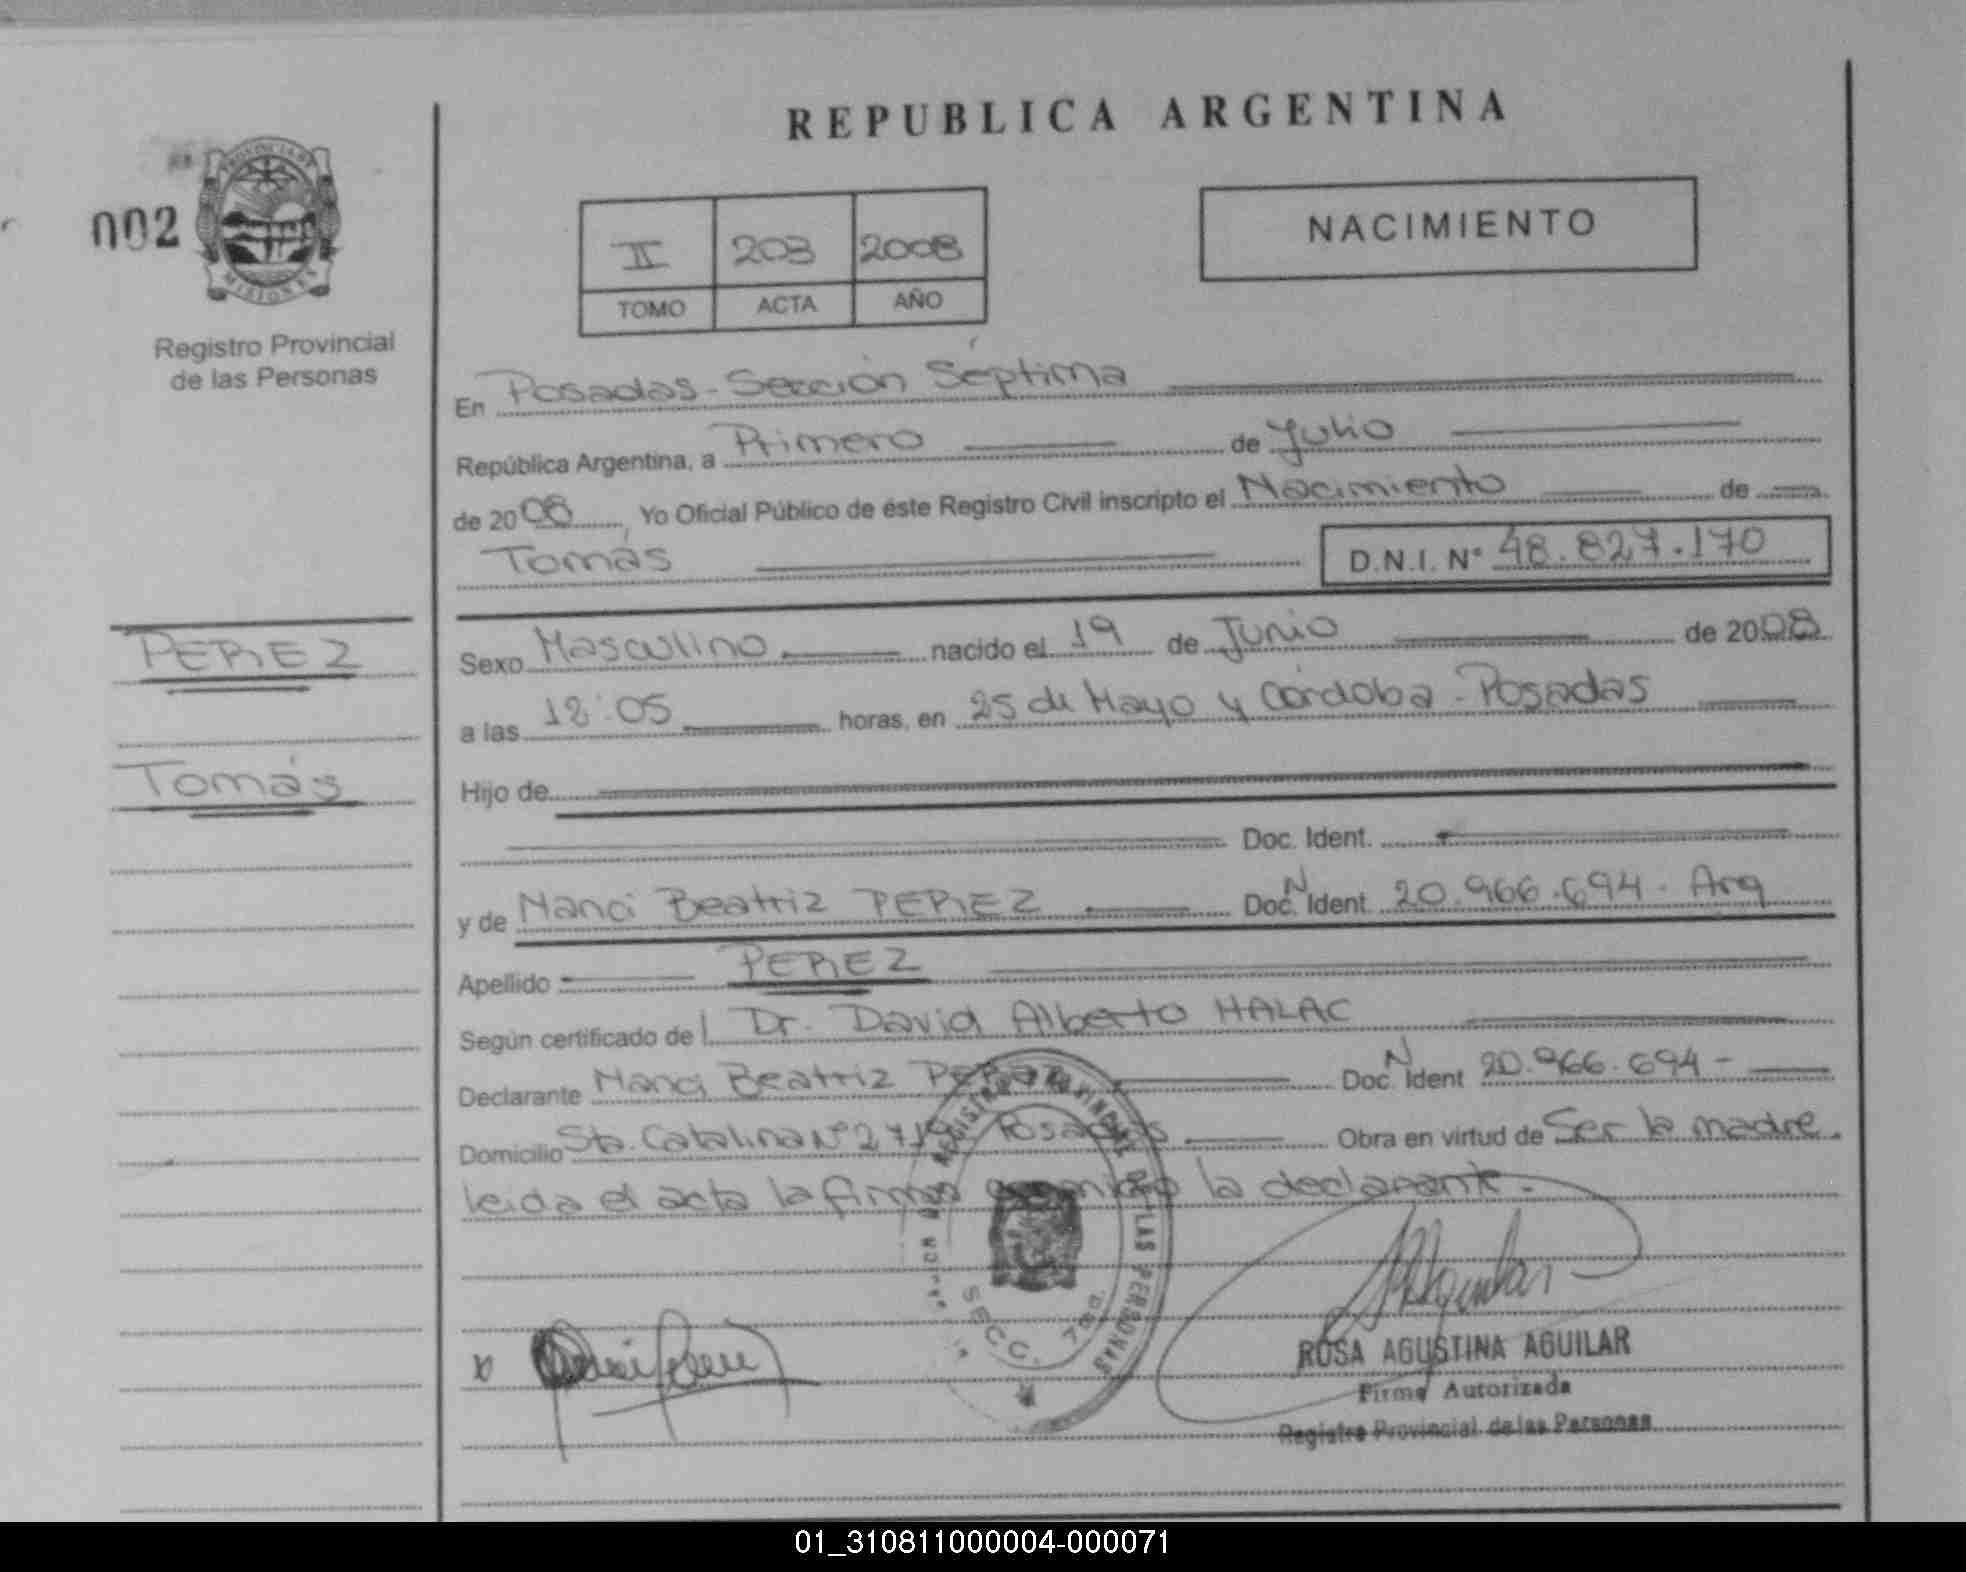 REPUBLICA ARGENTINA
002
PROVINCIA DE
MISIONES
Registro Provincial
de las Personas
II 203 2008
TOMO ACTA AÑO
NACIMIENTO
En Posadas - Sección Séptima
República Argentina, a Primero de Julio
de 2008 Yo Oficial Público de éste Registro Civil inscripto el Nacimiento de
Tomás D.N.I. N° 48.827.170
PEREZ
Tomás
Sexo Masculino nacido el 19 de Junio de 2008
a las 12:05 horas, en 25 de Mayo y Córdoba - Posadas
Hijo de
Doc. Ident.
y de Nanci Beatriz PEREZ Doc. N Ident. 20.966.694 - Arg
Apellido PEREZ
Según certificado de l Dr. David Alberto HALAC
Declarante Nanci Beatriz PEREZ Doc. N Ident 20.966.694 -
Domicilio Sta. Catalina N° 2719 Posadas Obra en virtud de Ser la madre.
leida el acta la firman conmigo la declarante.
REGISTRO PROVINCIAL DE LAS PERSONAS
SECC. 7ma.
ROSA AGUSTINA AGUILAR
Firma Autorizada
Registro Provincial de las Personas
01_310811000004-000071